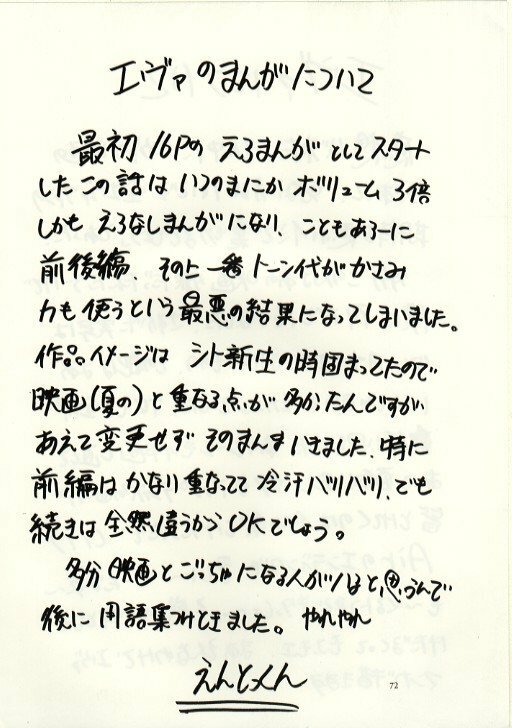 エヴァのまんがについて
最初16Pのえろまんがとしてスタート
したこの話はいつのまにかボリューム3倍
しかもえろなしまんがになり、こともあろーに
前後編、その上一番トーン代がかさみ
力も使うという最悪の結果になってしまいました。
作品イメージはシト新生の時固まってたので
映画(夏の)と重なる点が多かったんですが
あえて変更せずそのまんまいきました、特に
前編はかなり重なってて冷汗バリバリ、でも
続きは全然違うからOKでしょう。
多分映画とごっちゃになる人がいると思うんで
後に用語集つけときました。やれやれ
えんとっくん
72